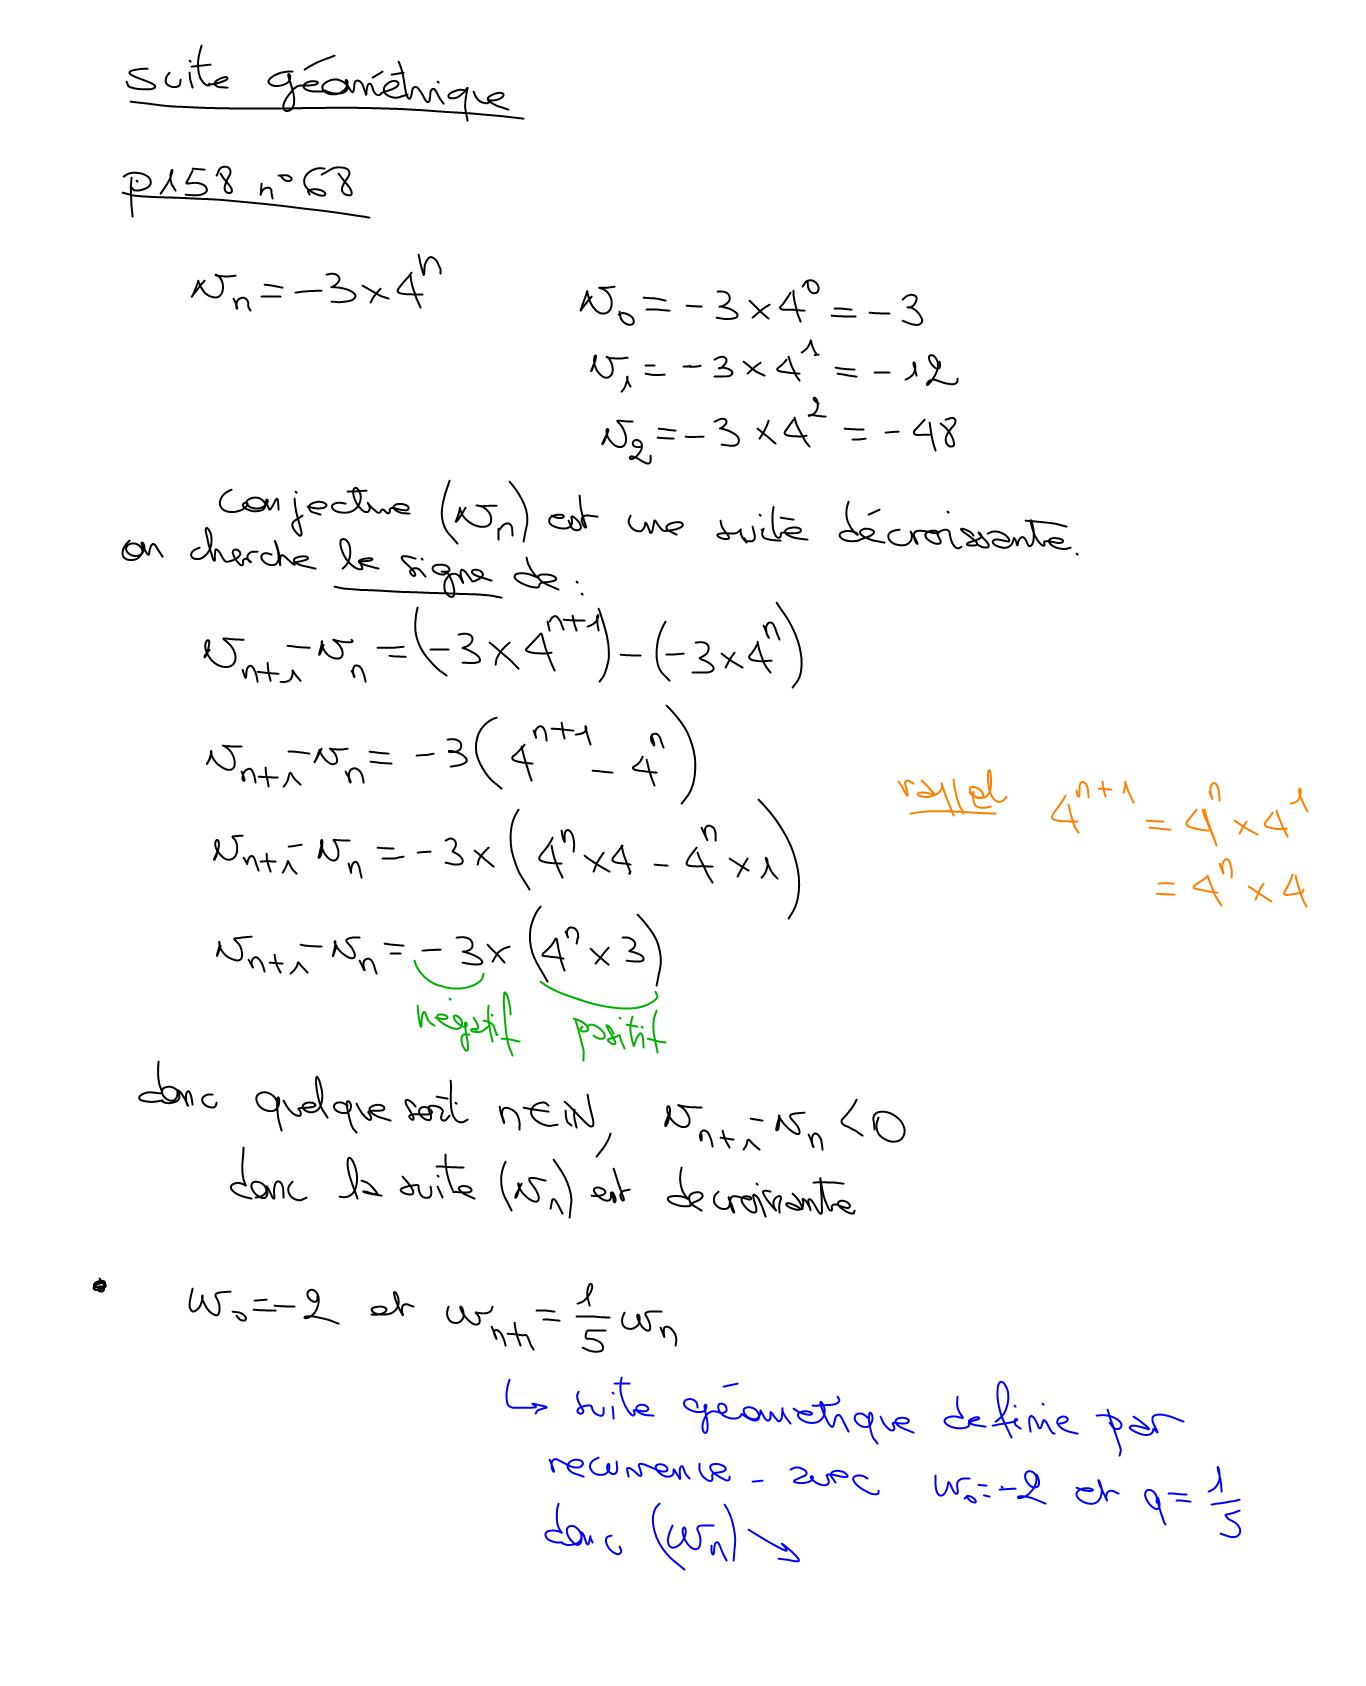 suite géométrique
p158 n°68
vₙ = -3 × 4ⁿ
v₀ = -3 × 4⁰ = -3
v₁ = -3 × 4¹ = -12
v₂ = -3 × 4² = -48
conjecture (vₙ) est une suite décroissante.
on cherche le signe de :
vₙ₊₁ - vₙ = (-3 × 4ⁿ⁺¹) - (-3 × 4ⁿ)
vₙ₊₁ - vₙ = -3(4ⁿ⁺¹ - 4ⁿ)
rappel 4ⁿ⁺¹ = 4ⁿ × 4¹
vₙ₊₁ - vₙ = -3 × (4ⁿ × 4 - 4ⁿ × 1)
= 4ⁿ × 4
vₙ₊₁ - vₙ = -3 × (4ⁿ × 3)
négatif positif
donc quelque soit n ∈ ℕ, vₙ₊₁ - vₙ < 0
donc la suite (vₙ) est decroissante
• w₀ = -2 et wₙ₊₁ = 1/5 wₙ
↳ suite géométique definie par
recurrence - avec w₀ = -2 et q = 1/5
donc (wₙ) ↘